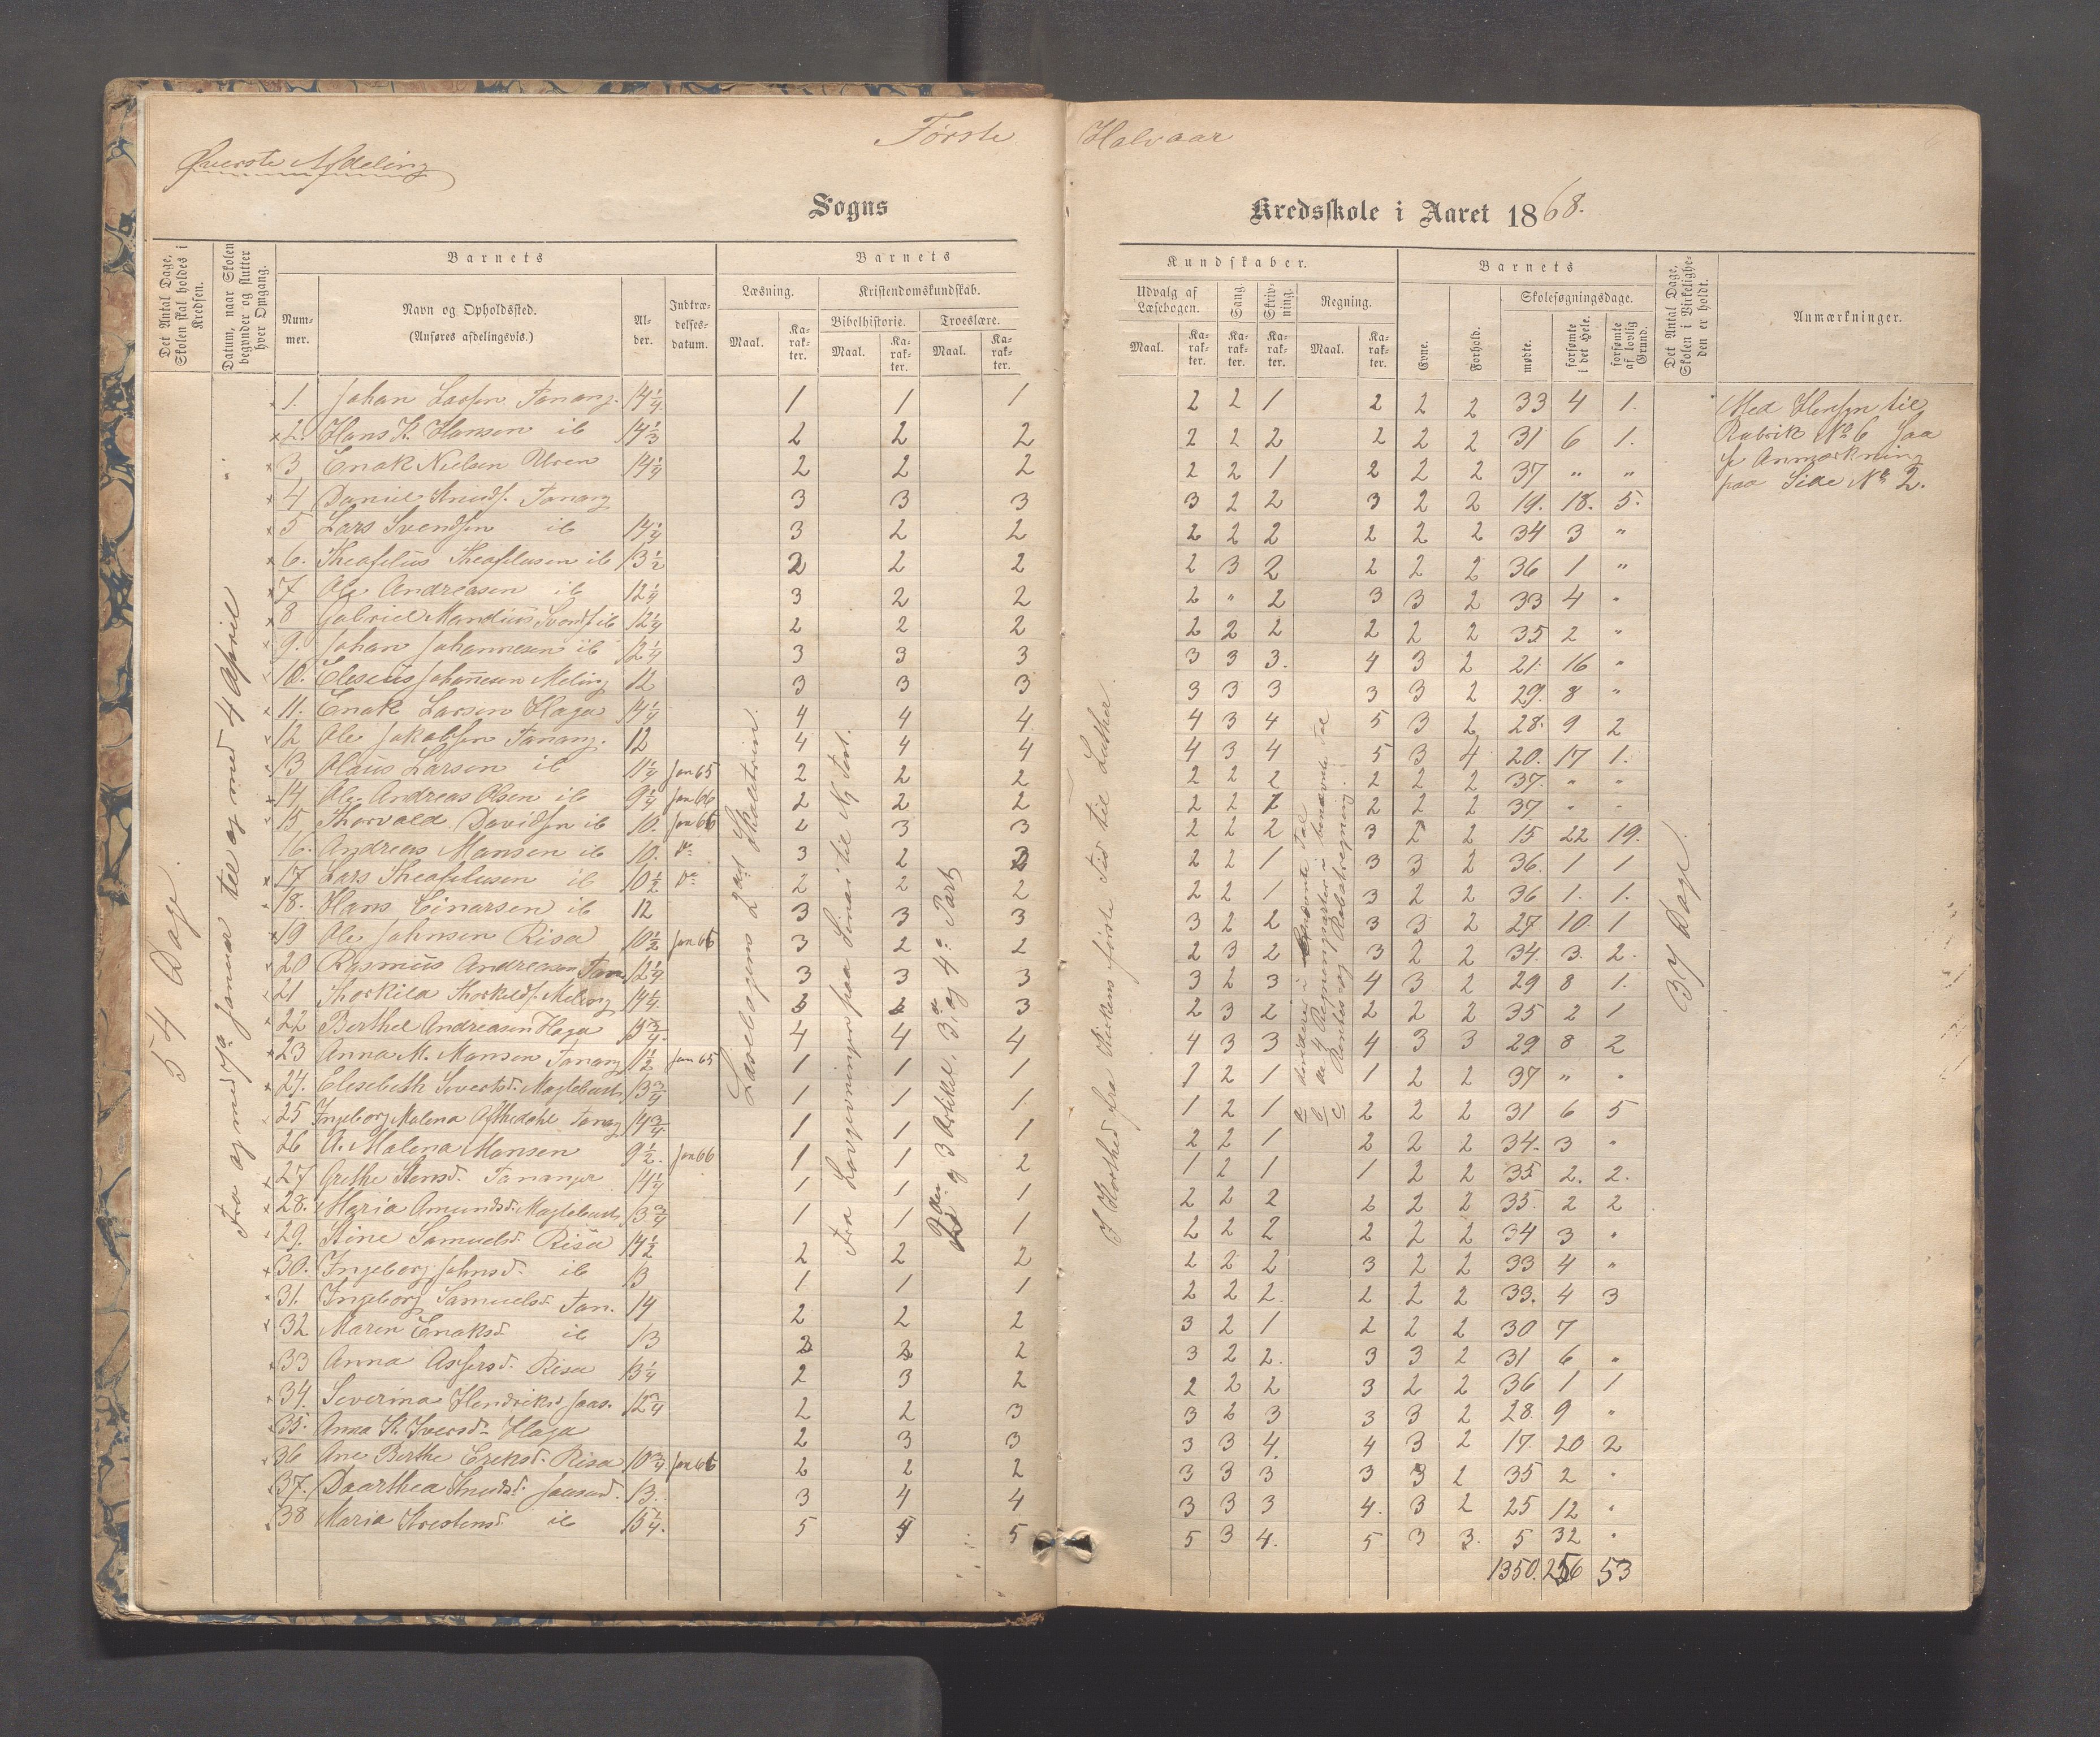 Første Halvaar
Øverste Afdeling
Sogns Kredsskole i Aaret 1868.
Det Antal Dage, Skolen skal holdes i Kredsen.
Datum, naar Skolen begynder og slutter hver Omgang.
Barnets
Nummer.
Navn og Opholdssted.
(Anføres afdelingsvis.)
Alder.
Indtrædelsesdatum.
Barnets Kundskaber.
Læsning.
Kristendomskundskab.
Bibelhistorie.
Troeslære.
Udvalg af Læsebogen.
Sang.
Skrivning.
Regning.
Maal.
Karakter.
Barnets
Evne.
Forhold.
Skolesøgningsdage.
mødte.
forsømte i det Hele.
forsømte af lovlig Grund.
Det Antal Dage, Skolen i Virkeligheden er holdt.
Anmærkninger.
54 Dage
Fra og med 7de Januar til og med 4 April
Læsebogens 2det Skoletrin.
Fra Lovgivningen paa Sinai til Ny Test.
og 3 Artikel, 3die og 4de Part
I Korthed fra Kirkens første Tid til Luther
de 4 Regningsarter i benævnte Tal
37 Dage
1. Johan Larsen Tanang. 14 1/4 1 1 1 2 2 1 2 2 2 33 4 1.
2. Hans K. Hansen ib 14 1/3 2 2 2 2 2 2 2 2 2 31 6 1.
3 Enok Nielsen 14 1/4 2 2 2 2 2 1 2 2 2 37 " "
4 Daniel Knuds. Tanang 3 3 3 3 2 2 3 2 2 19. 18. 5.
5 Lars Svendsen ib 14 1/4 3 2 2 2 2 2 2 2 2 34 3 "
6. Theofilus Theofilusen ib 13 1/2 2 2 2 2 3 2 2 2 2 36 1 "
7 Ole Andreasen ib 12 1/4 3 2 2 2 " 2 3 3 2 33 4 "
8 Gabriel Mandius Svends. ib 12 1/4 2 2 2 2 2 2 2 2 2 35 2 "
9. Johan Johannesen ib 12 1/4 3 3 3 3 3 3. 4 3 2 21. 16 "
10. Eleseus Johannesen Meling 12 3 3 3 3 3 3 3 3 2 29. 8 "
11. Enok Larsen Haga 14 1/4 4 4 4 4 3 4 5 3 2 28. 9 2
12 Ole Jakobsen Tanang. 12 4 4 4 4 3 4 5 3 4 20. 17 1.
13 Olaus Larsen ib 11 1/4 Jan 65 2 2 2 2 2 2 2 2 2 37. " "
14 Ole Andreas Olsen ib 9 1/4 Jan 66 2 2 2 2 2 2 2 2 2 37 " "
15 Thorvald Davidsen ib 10. Jan 66 2 3 3 2 2 2 3 2 2 15 22 19.
16. Andreas Monsen ib 10. do 3 2 2 2 1 3 3 2 36. 1 1
17 Lars Theofilusen ib 10 1/2 do 2 2 2 2 2 1 3 2 2 36 1. 1.
18. Hans Einarsen ib 12 3 3 3 3 2 2 3 3 2 27 10. 1
19 Ole Johnsen Risa 10 1/2 Jan 66 3 2 2 2 3 2 3 2 2 34. 3. 2.
20 Rasmus Andreasen Tan. 12 1/4 3 3 3 3 2 3 4 3 2 29 8 1.
21 Thorkild Thorkilds. Meling 14 1/4 3 2 3 2 2 2 2 35 2 1
22 Berthel Andreasen Haga 4 4 4 4 3 3 4 3 3 29 8 2
23 Anna M. Monsen Tanang 11 1/2 Jan 65 1 1 1 1 2 1 1 2 2 37 " "
24. Elesebeth Siverts d. 13 3/4 1 1 1 1 2 1 2 2 2 31 6 5
25 Ingeborg Malena Tanang 14 3/4 1 1 1 2 2 1 2 2 2 34. 3 "
26 A. Malena Monsen 9 1/2. Jan 66 1 1 2 1 2 1 1 2 2 35 2. 2.
27 Grethe Tananger 14 1/4 1 1 1 2 2 2 2 2 2 35. 2 2
28. Maria Amunds d. 13 3/4 1 1 1 2 2 2 2 2 2 34 3 "
29. Stine Samuelsd. Risa 14 1/2 2 2 2 2 2 2 3 2 2 33 4 "
30. Ingeborg Johnsd. ib 13 1 1 1 2 2 2. 2 2 2 33. 4 3
31. Ingeborg Samuelsd. Tan. 14 2 2 2 3 2 1 2 2 2 30 7
32 Maren Enoksd. ib 13 2 2 2 3 2 2. 3 3 2 31 6 "
33 Anna Risa 13 1/4 2 3 2 2 2 2 3 2 2 36 1 1
34. Severina Hendriksd. 12 3/4 2 2 3 3 2 3 3 3 2 28. 9 "
35. Anna K. Iversd. Haga 2 3 3 3 3 4. 4 3 2 17. 20 2
36 Ane Berthe Ereksd. Risa 10 3/4 Jan 66 2 2 2 3 3 3 3 3 2 35 2 "
37. Daarthea Knudsd. 13. 3 4 4 3 3 3 4. 3 2 25 12 "
38 Maria ib 5 5 5 3 4. 5 3 3. 5 32 "
1350. 256 53
Med Hensyn til
Rubrik No 6
Anmærkning
paa Side No 2.